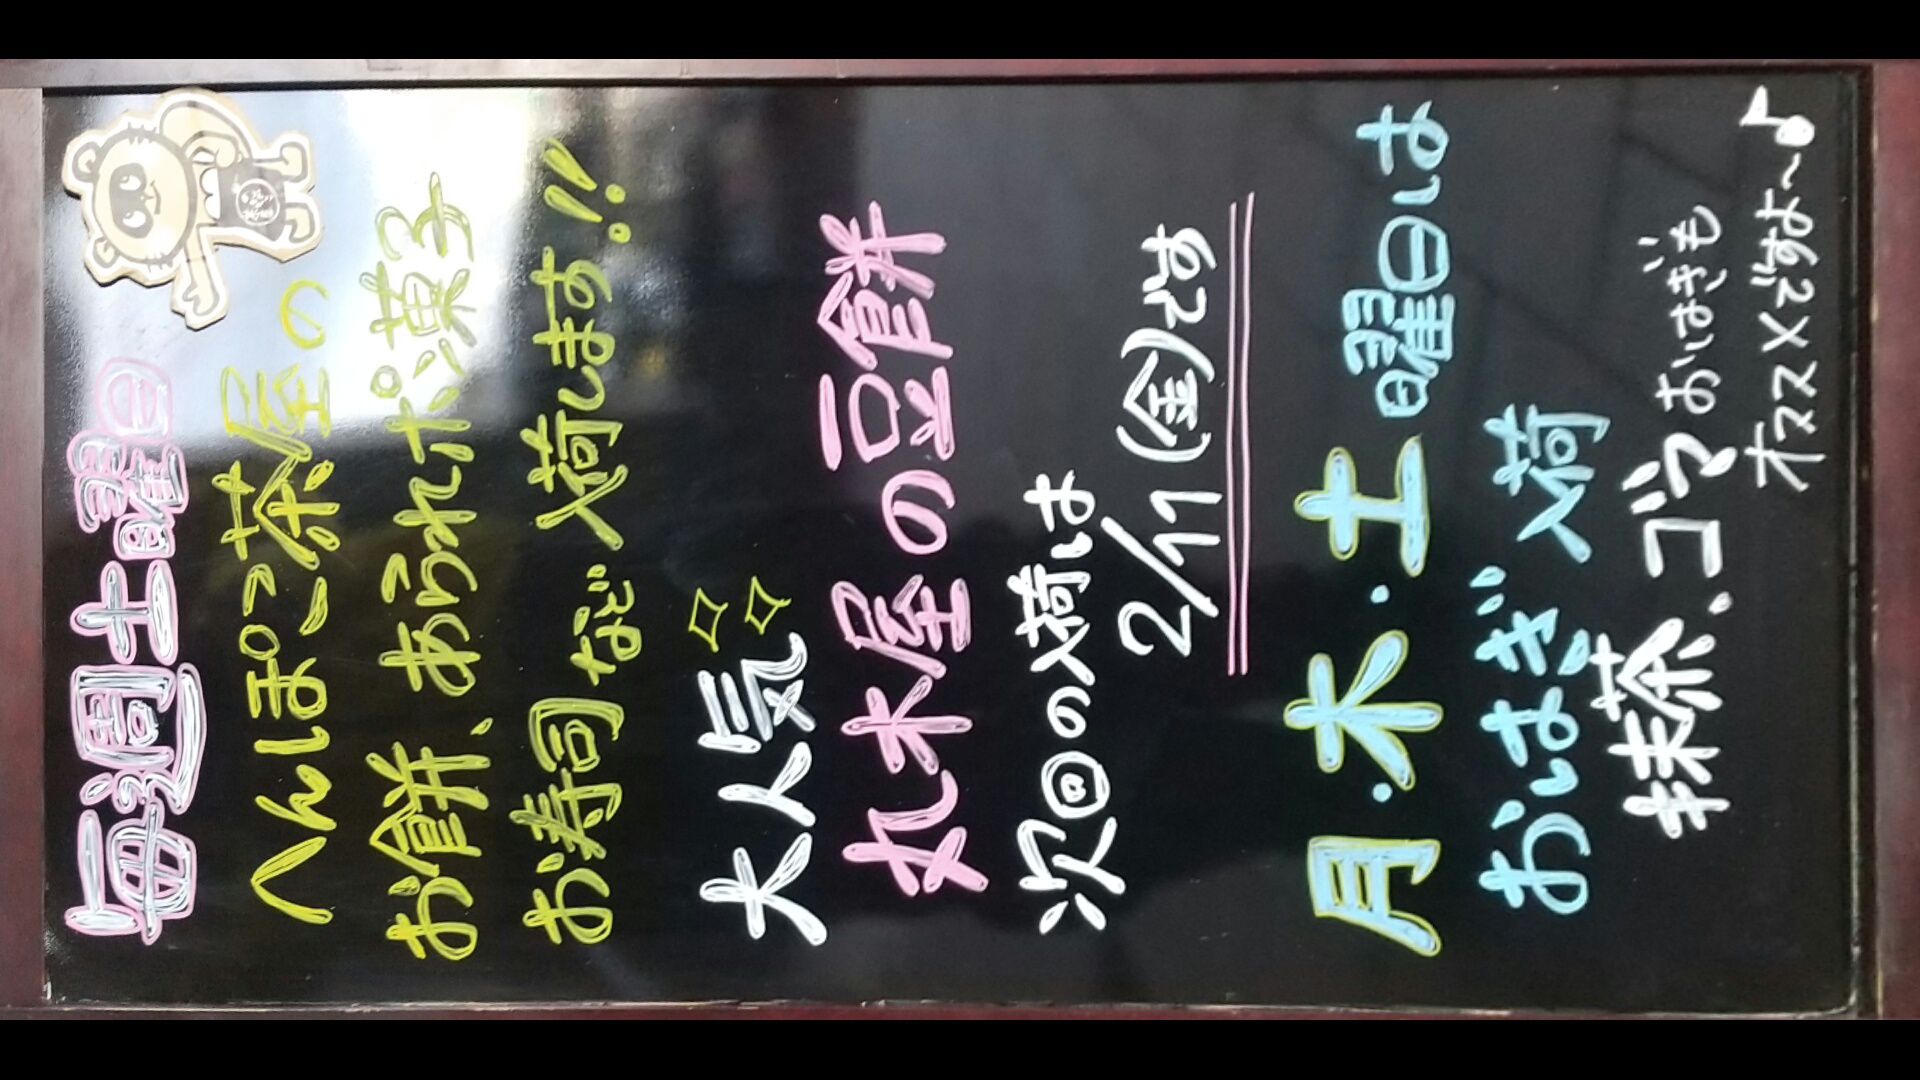 毎週土曜日
へんぽこ茶屋の
お餅、あられポン菓子
お寿司など入荷します!!
大人気
丸木屋の豆餅
次回の入荷は
2/11(金)です
月・木・土曜日は
おはぎ入荷
抹茶、ゴマおはぎも
オススメですよ〜♪